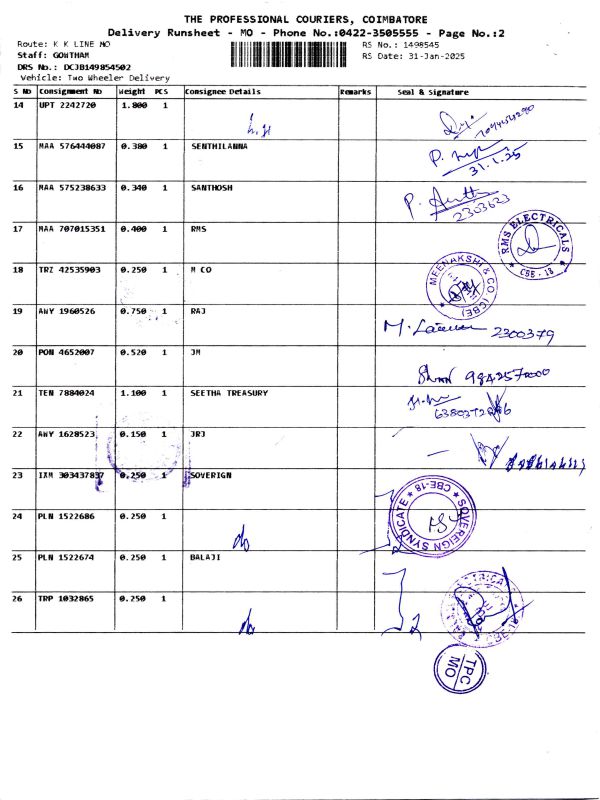 THE PROFESSIONAL COURIERS, COIMBATORE
Delivery Runsheet - MO - Phone No.:0422-3505555 - Page No.:2
Route: K K LINE MO
RS No.: 1498545
Staff: GOWTHAM
RS Date: 31-Jan-2025
DRS No.: DCJB149854502
Vehicle: Two Wheeler Delivery
S No Consignment No Weight PCS Consignee Details Remarks Seal & Signature
14 UPT 2242720 1.800 1
15 MAA 576444087 0.380 1 SENTHILANNA
31.1.25
16 MAA 575238633 0.340 1 SANTHOSH
2303623
17 MAA 707015351 0.400 1 RMS
RMS ELECTRICALS CBE - 18
18 TRZ 42535903 0.250 1 M CO
MEENAKSHI & CO (CBE)
19 AWY 1960526 0.750 1 RAJ
2300379
20 PON 4652007 0.520 1 JM
21 TEN 7884024 1.100 1 SEETHA TREASURY
22 AWY 1628523 0.150 1 JRJ
23 IXM 303437837 0.250 1 SOVERIGN
SOVEREIGN SYNDICATE CBE-18
24 PLN 1522686 0.250 1
do
25 PLN 1522674 0.250 1 BALAJI
26 TRP 1032865 0.250 1
do
2
CBE-18
TPC
MO